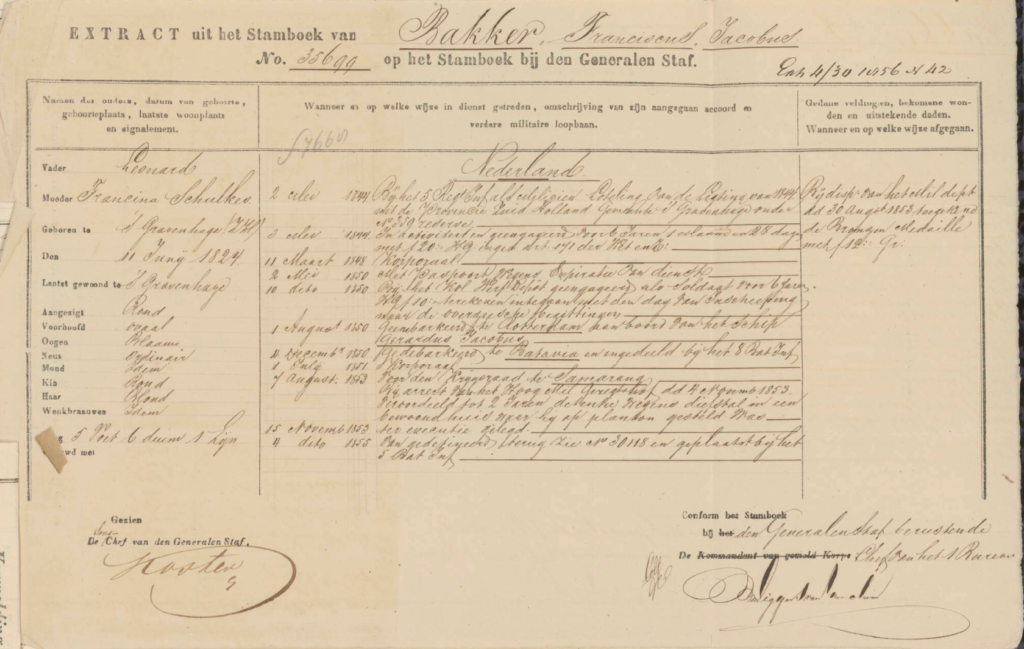 EXTRACT uit het Stamboek van Bakker, Franciscus, Jacobus
No. 35699 op het Stamboek bij den Generalen Staf.
4/30 1856 N 42
Namen der ouders, datum van geboorte, geboorteplaats, laatste woonplaats en signalement.
Wanneer en op welke wijze in dienst getreden, omschrijving van zijn aangegaan accoord en verdere militaire loopbaan.
Gedane veldtogten, bekomene wonden en uitstekende daden. Wanneer en op welke wijze afgegaan.
Vader Leonard
Nederland
Moeder Francina Schulkes
2 1844 Bij het 5 Reg Inf als Loteling van de Ligting van 1844
met de Provincie Zuid Holland Gemeente s Gravenhage onder
N 339 reserve
Geboren te 's Gravenhage (ZH)
3 1844 en geengageerd voor 6 Jaren 1 maand 28 dag
Den 11 Juny 1824
11 Maart 1848 Korporaal
2 Mei 1850 Met Paspoort Wegens Expiratie van dienst
Laatst gewoond te 's Gravenhage
10 dito 1850 Bij het Kol Werf Depot geengageerd als Soldaat voor 6 Jaren
met den dag van Inscheeping
naar de overzeesche bezittingen
Aangezigt Rond
Voorhoofd ovaal
1 August 1850 Geembarkeerd te Rotterdam aan boord van het Schip
Gerardus Jacobus
Oogen Blaauw
Neus Ordinair
11 Decembr 1850 Gedebarkeerd te Batavia en ingedeeld bij het 8 Bat Inf
Mond Idem
1 July 1851 Korporaal
Kin Rond
7 August 1853 Voor den Krygsraad te Samarang
Haar Blond
Bij arrest van het Hoog Mil Geregtshof dd 4 Novemb 1853
Wenkbraauwen Idem
Veroordeeld tot 2 Jaren detentie Wegens diefstal in een
bewoond huis waar hy op planton gesteld was
5 Voet 6 duim 1 lijn
15 Novemb 1853 ter executie gelegd
4 dito 1855 Van gedetineerd terug Zie No 30118 en geplaatst bij het
5 Bat Inf
dd 30 Augst 1853
de Bronzen Medaille
met f 12: Gr:
Gezien
De Chef van den Generalen Staf.
Conform het Stamboek
bij het den Generalen Staf berustende
De Kommandant van gemeld Korps Chef van het 1 Bureau